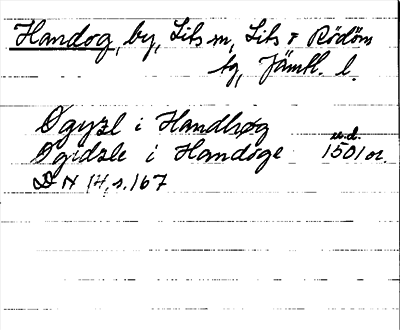 Handog, by, Lits sn, Lits o Rödöns
tg, Jämtl. l.
Øgyzl i Handhøg
u.d.
Øgidzle i Handøge 1501 or.
DN 14, s. 167